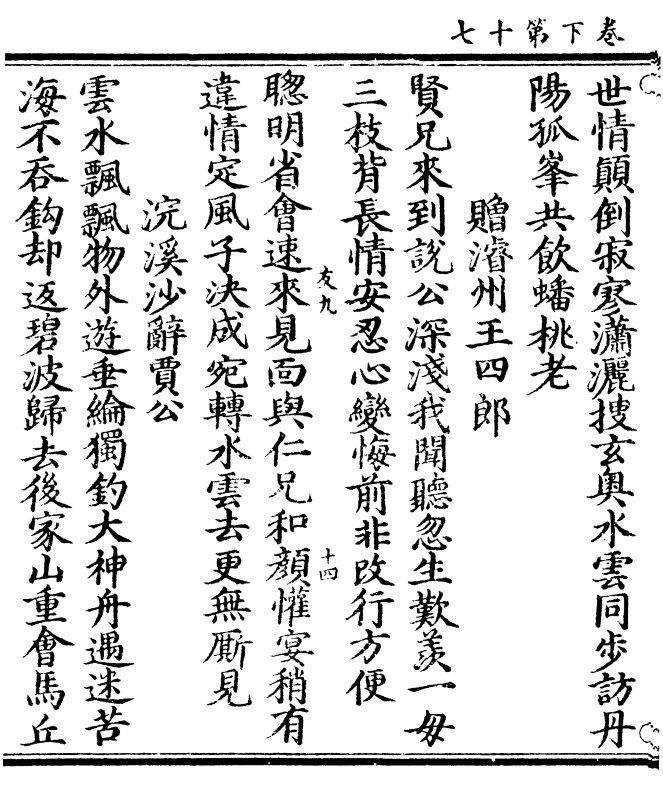 卷下第十七
世情顛倒寂寥瀟灑搜玄奧水雲同步訪丹
陽孤峯共飲蟠桃老
贈濬州王四郎
賢兄來到說公深淺我聞聽忽生歎羨一毋
三枝背長情安忍心變悔前非改行方便
聰明省會速來見面與仁兄和顏懽宴稍有
友九
十四
違情定風子決成宛轉水雲去更無厮見
浣溪沙辭賈公
雲水飄飄物外遊垂綸獨釣大神舟遇迷苦
海不吞鈎却返碧波歸去後家山重會馬丘